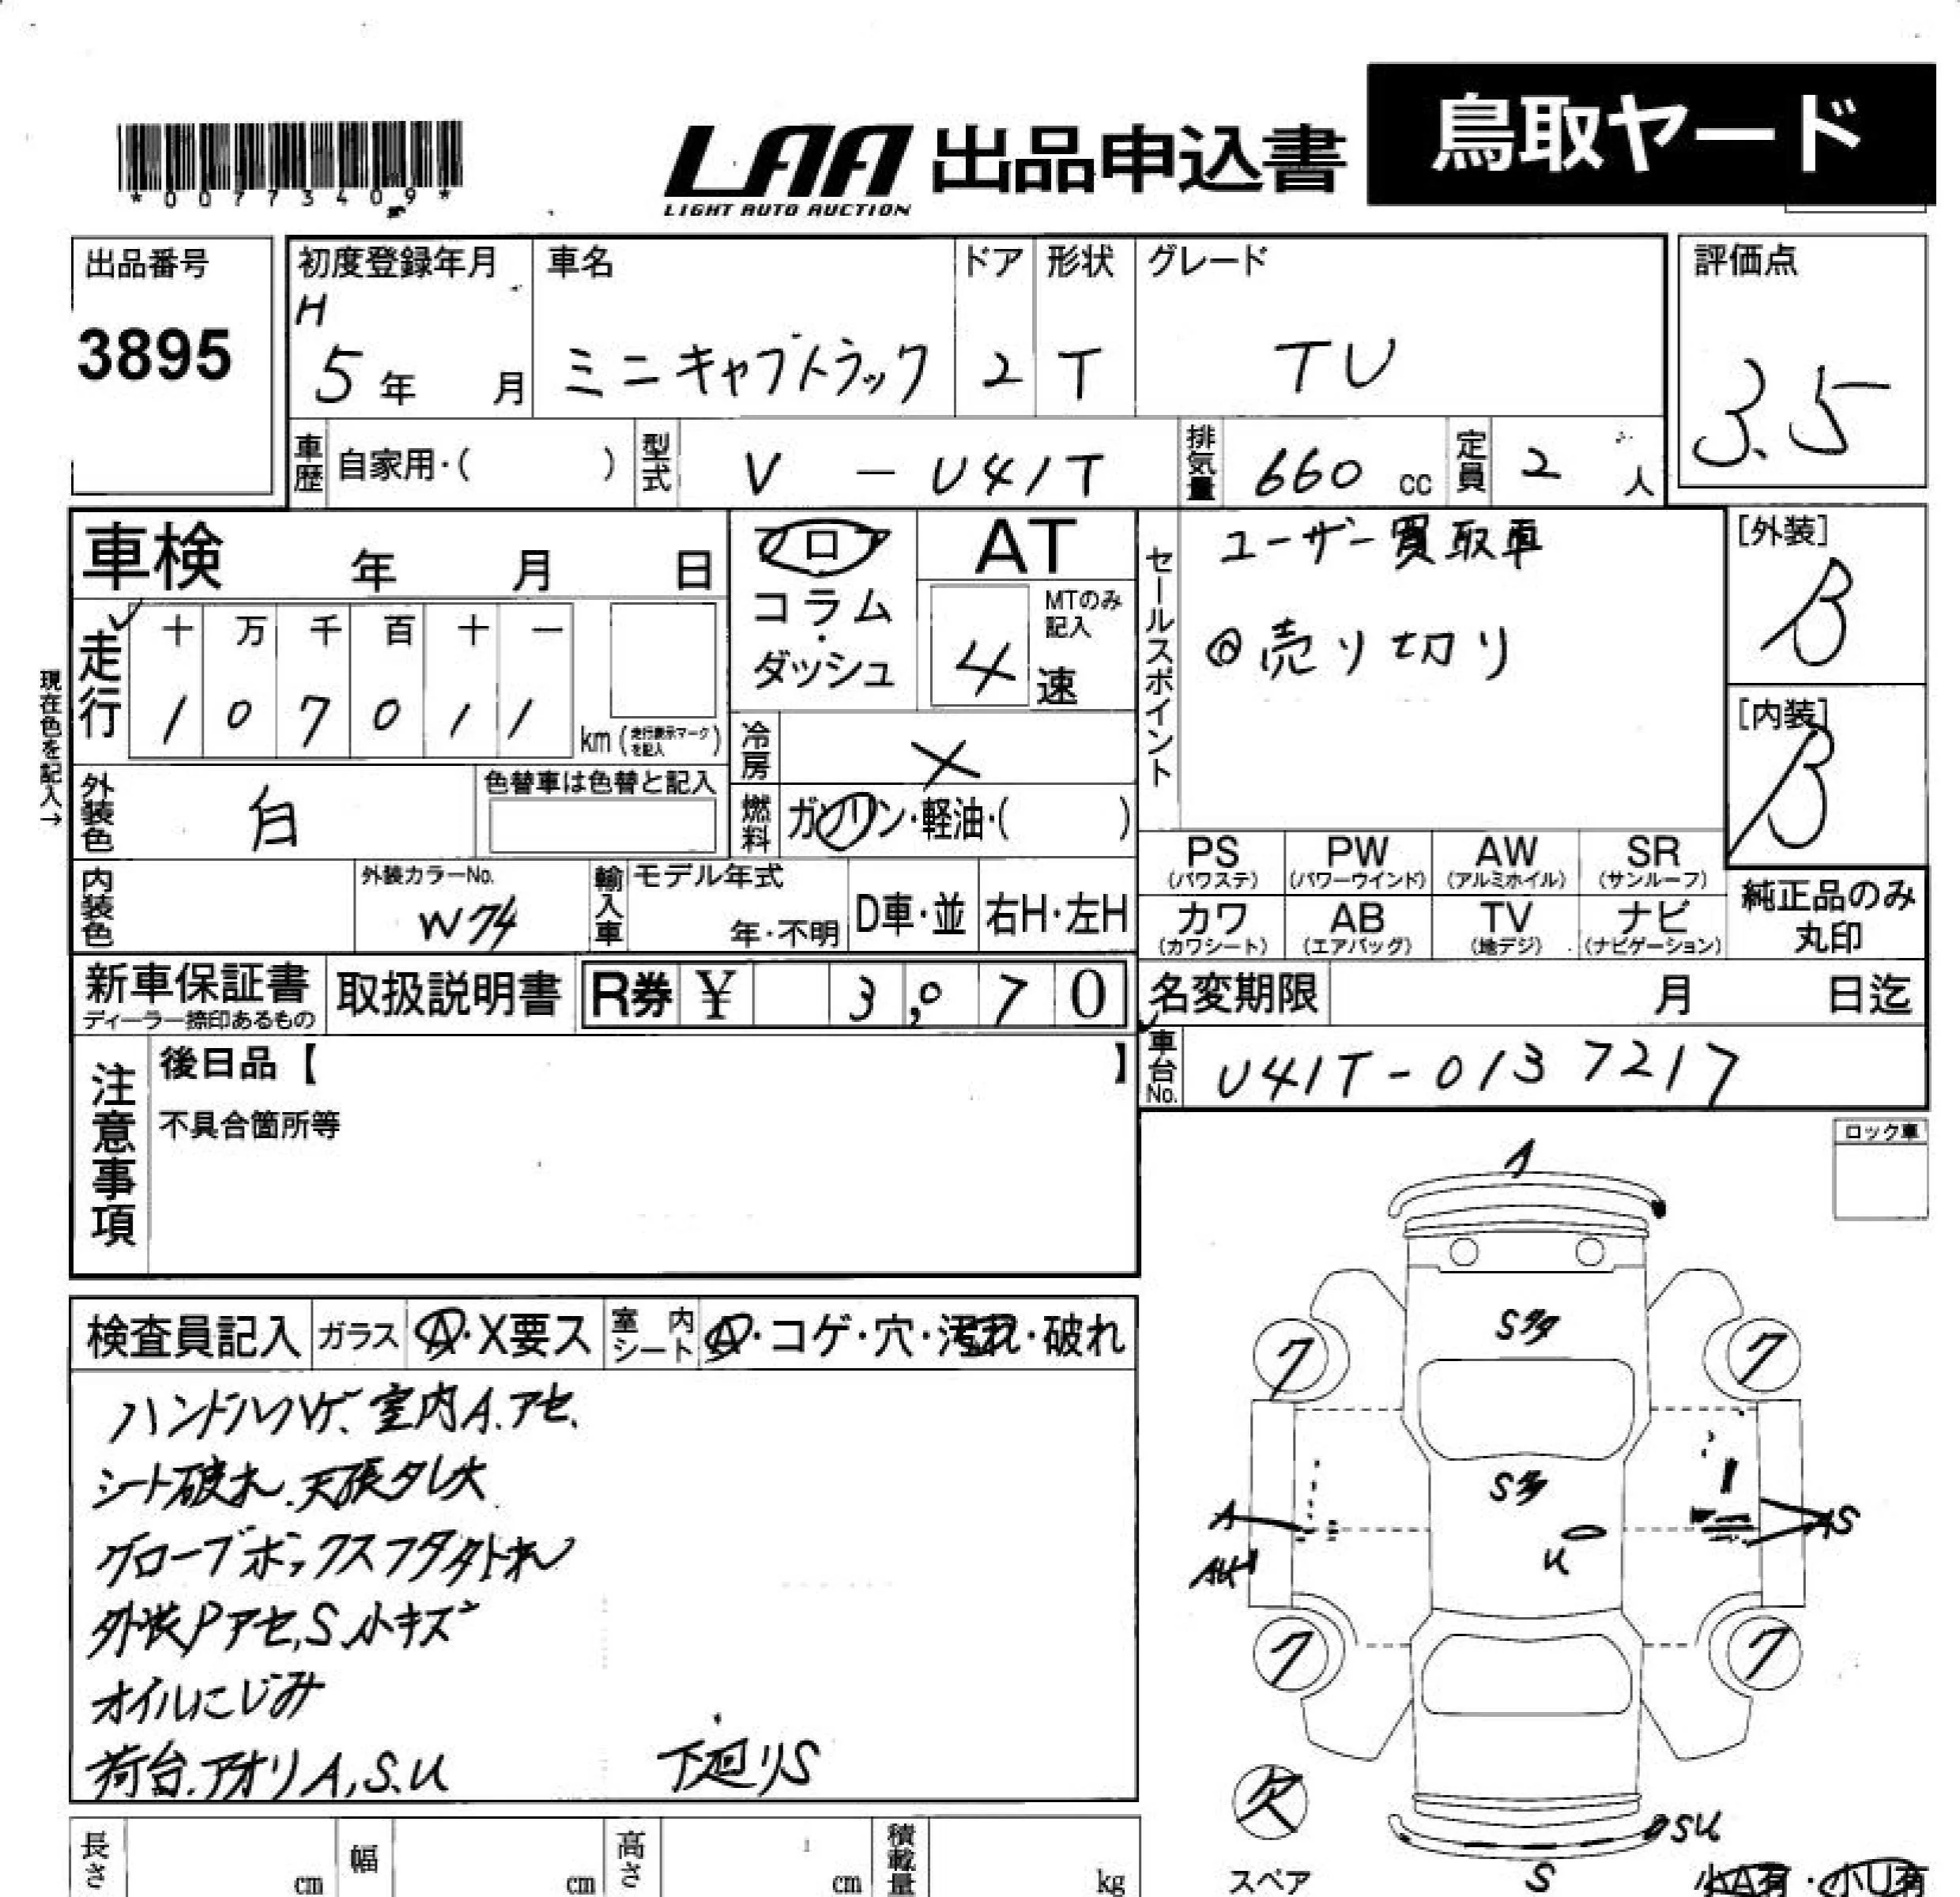 鳥取ヤード
LAA 出品申込書
LIGHT AUTO AUCTION
*00773409*
出品番号
3895
初度登録年月
H
5年 月
車名
ミニキャブトラック
ドア
2
形状
T
グレード
TU
評価点
3.5
車歴 自家用・( )
型式 V - U41T
排気量 660 cc
定員 2 人
車検 年 月 日
フロア
コラム・ダッシュ
AT
MTのみ記入
4 速
セールスポイント
ユーザー買取車
◎売り切り
[外装]
B
[内装]
B
現在色を記入→
走行
十 万 千 百 十 一
1 0 7 0 1 1
km (走行表示マークを記入)
冷房 ×
外装色 白
色替車は色替と記入
燃料 ガソリン・軽油・( )
内装色
外装カラーNo.
W74
輸入車
モデル年式
年・不明
D車・並
右H・左H
PS (パワステ)
PW (パワーウインド)
AW (アルミホイル)
SR (サンルーフ)
カワ (カワシート)
AB (エアバッグ)
TV (地デジ)
ナビ (ナビゲーション)
純正品のみ丸印
新車保証書
ディーラー捺印あるもの
取扱説明書
R券 ¥ 3,070
名変期限 月 日迄
車台No. U41T-0137217
注意事項
後日品【 】
不具合箇所等
ロック車
検査員記入
ガラス A・X要ス
室内シート A・コゲ・穴・汚れ・破れ
ハンドルハゲ、室内A.アセ、
シート破れ.天張タレ大
グローブボックスフタ外れ
外装Pアセ,S,小キズ
オイルにじみ
荷台.アオリA,S.U
下廻りS
S多
7
7
S多
A
U
S
7
7
欠
スペア
SU
S
小A有・小U有
長さ cm
幅 cm
高さ cm
積載量 kg